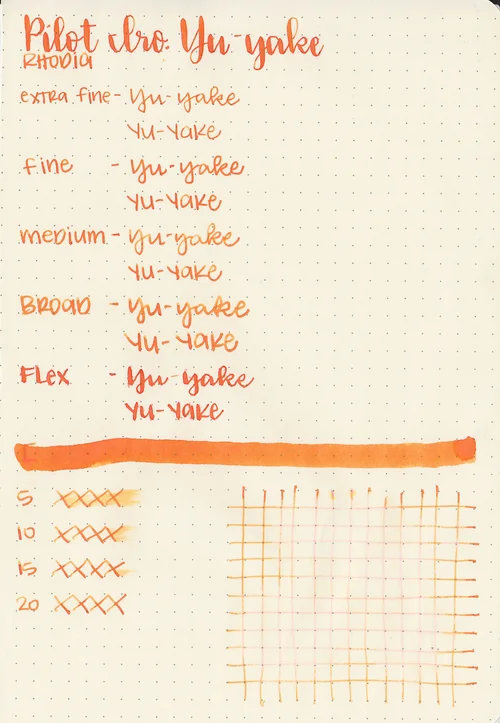 Pilot iro. Yu-yake
RHODIA
extra fine - Yu-yake
Yu-Yake
fine - Yu-yake
Yu-Yake
medium - Yu-yake
Yu-Yake
BROAD - Yu-yake
Yu-Yake
FLEX - Yu-yake
Yu-Yake
5 XXXX
10 XXXX
15 XXXX
20 XXXX